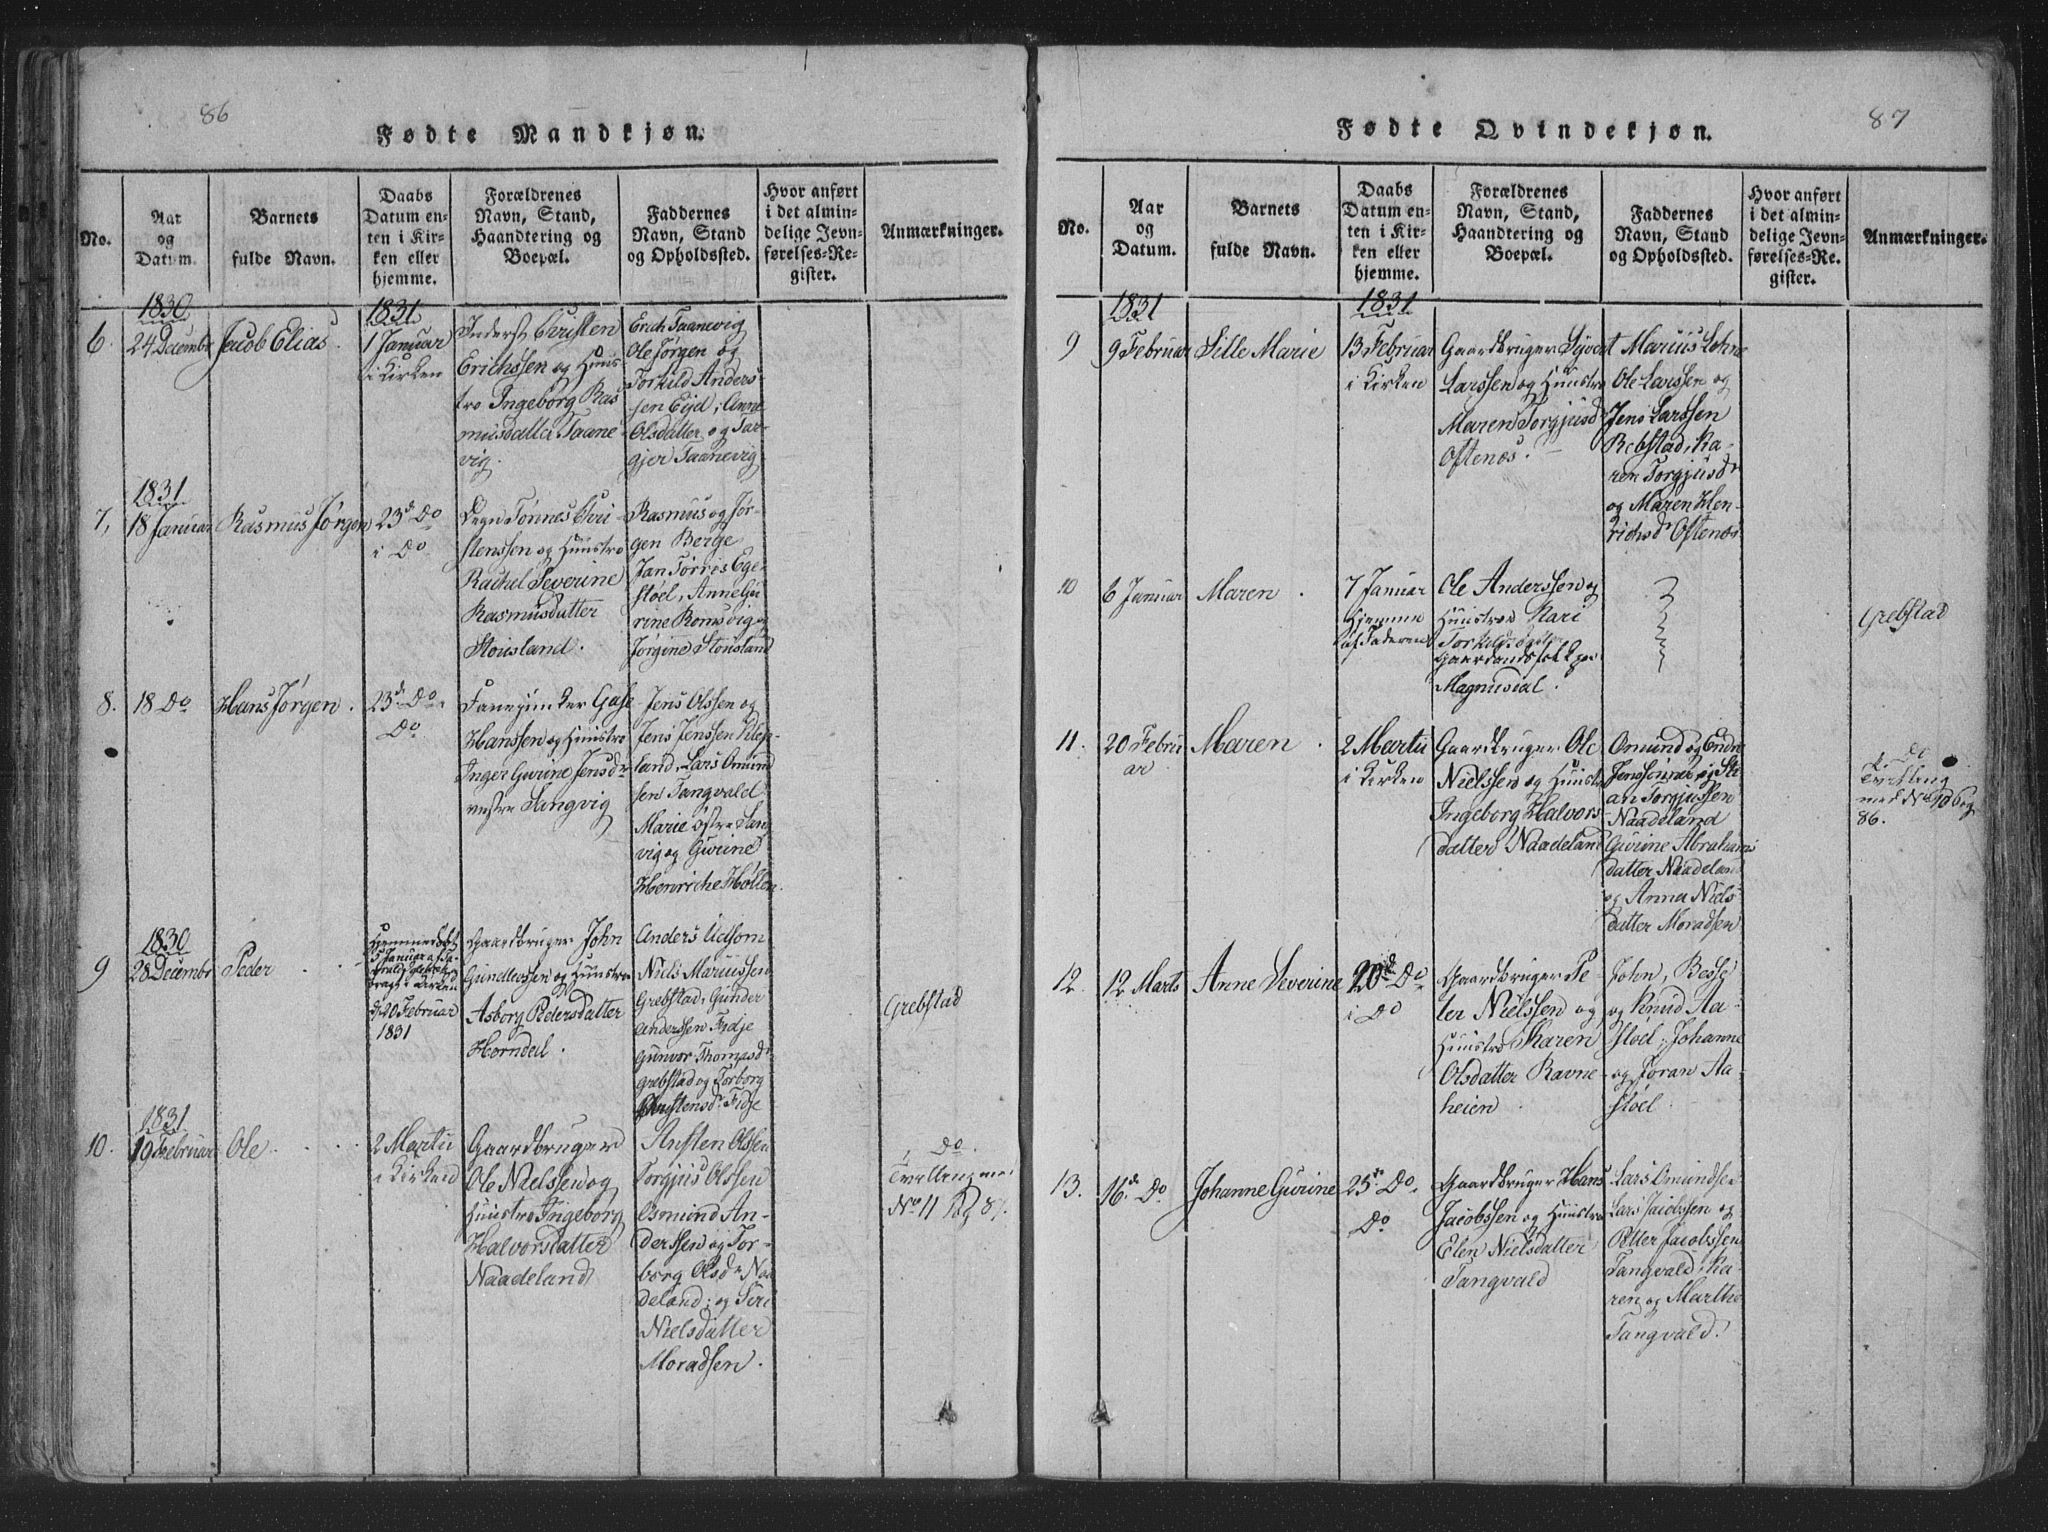 86
Fødte Mandkjøn.
No.
Aar
og
Datum.
Barnets
fulde Navn.
Daabs
Datum en-
ten i Kir-
ken eller
hjemme.
Forældrenes
Navn, Stand,
Haandtering og
Boepæl.
Faddernes
Navn, Stand
og Opholdssted.
Hvor anført
i det almin-
delige Jevn-
førelses-Re-
gister.
Anmærkninger.
6.
1830
24 Decembr
Jacob Elias
1831
1 Januar
i Kirken
Inderst Christen
Erichssen og Huus-
tro Ingeborg Ras
musdatter Taane-
vig.
Erich Taanevig
Ole Jørgen og
Torkild Anders-
sen Eijd, Anne
Olsdatter og Tar-
gjer Taanevig
7,
1831
18 Januar
Rasmus Jørgen
23de Do
i Do
Degn Tønnes Chri
stenssen og Huustro
Rachel Severine
Rasmusdatter
Stousland.
Rasmus og Jør-
gen Berge
Jan Torris Ege-
støel, Anne Gu
rine Romsvig og
Jørgine Stousland
8.
18 Do
Hans Jørgen.
23de Do
Do
Hanssen og Huustro
Inger Gurine Jensdr
vestre Langvig
Jens Olssen og
Jens Jenssen Klep-
land, Lars Omund
sen Tangvald
Marie østre Lang
vig og Gurine
Henriche Høllen.
9
1830
28 Decembr
Peder
5 Januar
i Kirken
d/20 Februar
1831
Gaardbruger John
Gundlessen og Huustro
Asborg Pedersdatter
Horndal.
Anders Udsom
Niels Mariussen
Grebstad, Gunder
Anderssen Fidje
Gunvor Thomasdr
Grebstad og Torborg
Christensdr Fidje
Grebstad
10.
1831
19 Februar
Ole
2 Martii
i Kirken
Gaardbruger
Ole Nielssen og
Huustro Ingeborg
Halvorsdatter
Naadeland
Ansten Olssen
Torgjus Olssen
Osmund An-
derssen og Tor-
borg Olsdr Naa
deland; og Siri
Nielsdatter
Moradsen.
Do
Tvilling med
No 11 Pag 87.
87
Fødte Qvindekjøn.
No.
Aar
og
Datum.
Barnets
fulde Navn.
Daabs
Datum en-
ten i Kir-
ken eller
hjemme.
Forældrenes
Navn, Stand,
Haandtering og
Boepæl.
Faddernes
Navn, Stand
og Opholdssted.
Hvor anført
i det almin-
delige Jevn-
førelses-Re-
gister.
Anmærkninger.
9
1831
9 Februar
Sille Marie
1831
13 Februar
i Kirken
Gaardbruger Syvert
Larssen og Huustro
Maren Torgjusdr
Oftenæs.
Marius Lohne
Ole Larssen og
Jens Larssen
Rebstad, Ka-
ren Torgjusdr
og Maren Hen-
richsdr Oftenæs
10
6 Januar
Maren.
7 Januar
Hjemme
af Faderen
Ole Anderssen og
Huustroe Kari
Gaardmandsfolk paa
Magnusdal.
Grebstad
11.
20 Febru
ar
Maren.
2 Martii
i Kirken
Gaardbruger Ole
Nielssen og Huustro
Ingeborg Halvors
datter Naadeland
Omund og
an Torgjussen
Naadeland
Gurine Abrahams
datter Naadeland
og Anna Niels
datter Moradsen
Do
Tvilling
med No 10 Pag
86.
12.
12 Marts
Anne Severine
20de Do
i Do
Gaardbruger Pe-
ter Nielssen og
Huustro Karen
Olsdatter Ravne-
heien
John, Besse
og Knud Aa-
støel; Johanne
og Joran Aa-
støel.
13.
16de Do
Johanne Gurine
25de Do
Do
Gaardbruger Hans
Jacobssen og Huustro
Elen Nielsdatter
Tangvald
Lars Omundsen
Lars Jacobssen og
Petter Jacobssen
Tangvald, Ka-
ren og Marthe
Tangvald.